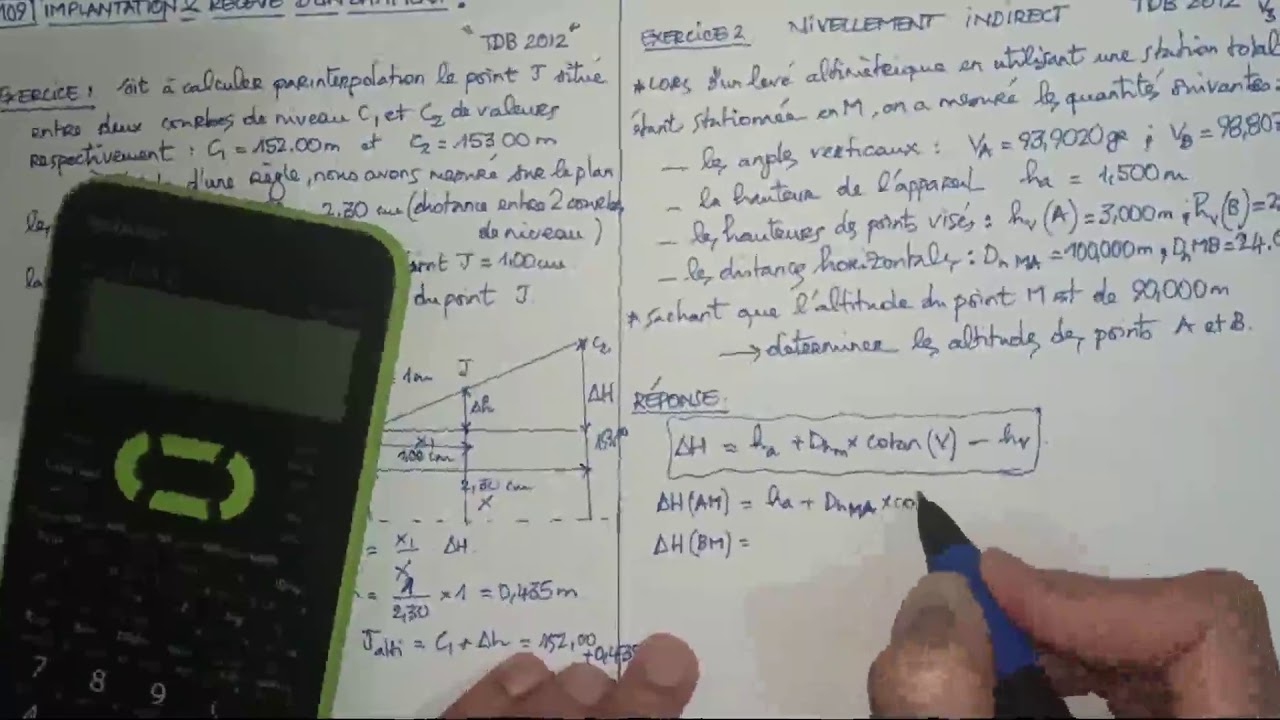 109) IMPLANTATION &
"TDB 2012"
EXERCICE: soit à calculer par interpolation le point J situé
entre deux courbes de niveau C1 et C2 de valeurs
respectivement : C1 = 152.00m et C2 = 153.00m
d'une règle, nous avons mesuré sur le plan
2,30 cm (distance entre 2 courbes
de niveau)
J = 1.00 cm
du point J.
1cm J C2
Δh ΔH
X1
1.00 cm
2,30 cm
X
= X1/X ΔH.
= 1/2,30 × 1 = 0,435m
Jalti = C1 + Δh = 152,00
+0,435
TDB 2012 1/3
EXERCICE 2 NIVELLEMENT INDIRECT
* Lors d'un levé altimétrique en utilisant une station totale
étant stationnée en M, on a mesuré les quantités suivantes:
— les angles verticaux : VA = 93,9020 gr ; VB = 98,807
— la hauteur de l'appareil ha = 1,500m
— les hauteurs des points visés : hv(A) = 3,000m ; hv(B) = 2
— les distances horizontales : Dh MA = 100,000m, Dh MB = 24.
* Sachant que l'altitude du point M est de 90,000m
→ déterminer les altitudes des points A et B.
RÉPONSE.
ΔH = ha + Dhm × cotan(V) − hv
ΔH(AM) = ha + DhMA × co
ΔH(BM) =
7 8 9